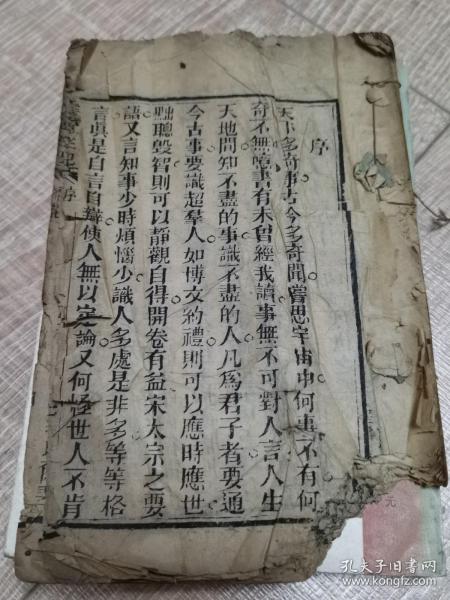 序
天下多奇事古今多奇聞嘗思宇宙中何書不有何
奇不無嘗書有未曾經我讀事無不可對人言人生
天地間知不盡的事識不盡的人凡為君子者要通
今古事要識超羣人如博文約禮則可以應時應世
黜聰毀智則可以靜觀自得開卷有益宋太宗之要
語又言知事少時煩惱少識人多處是非多等等格
言眞是自言自辯使人無以定論又何怪世人不肯
序
元
孔夫子旧书网
www.kongfz.com